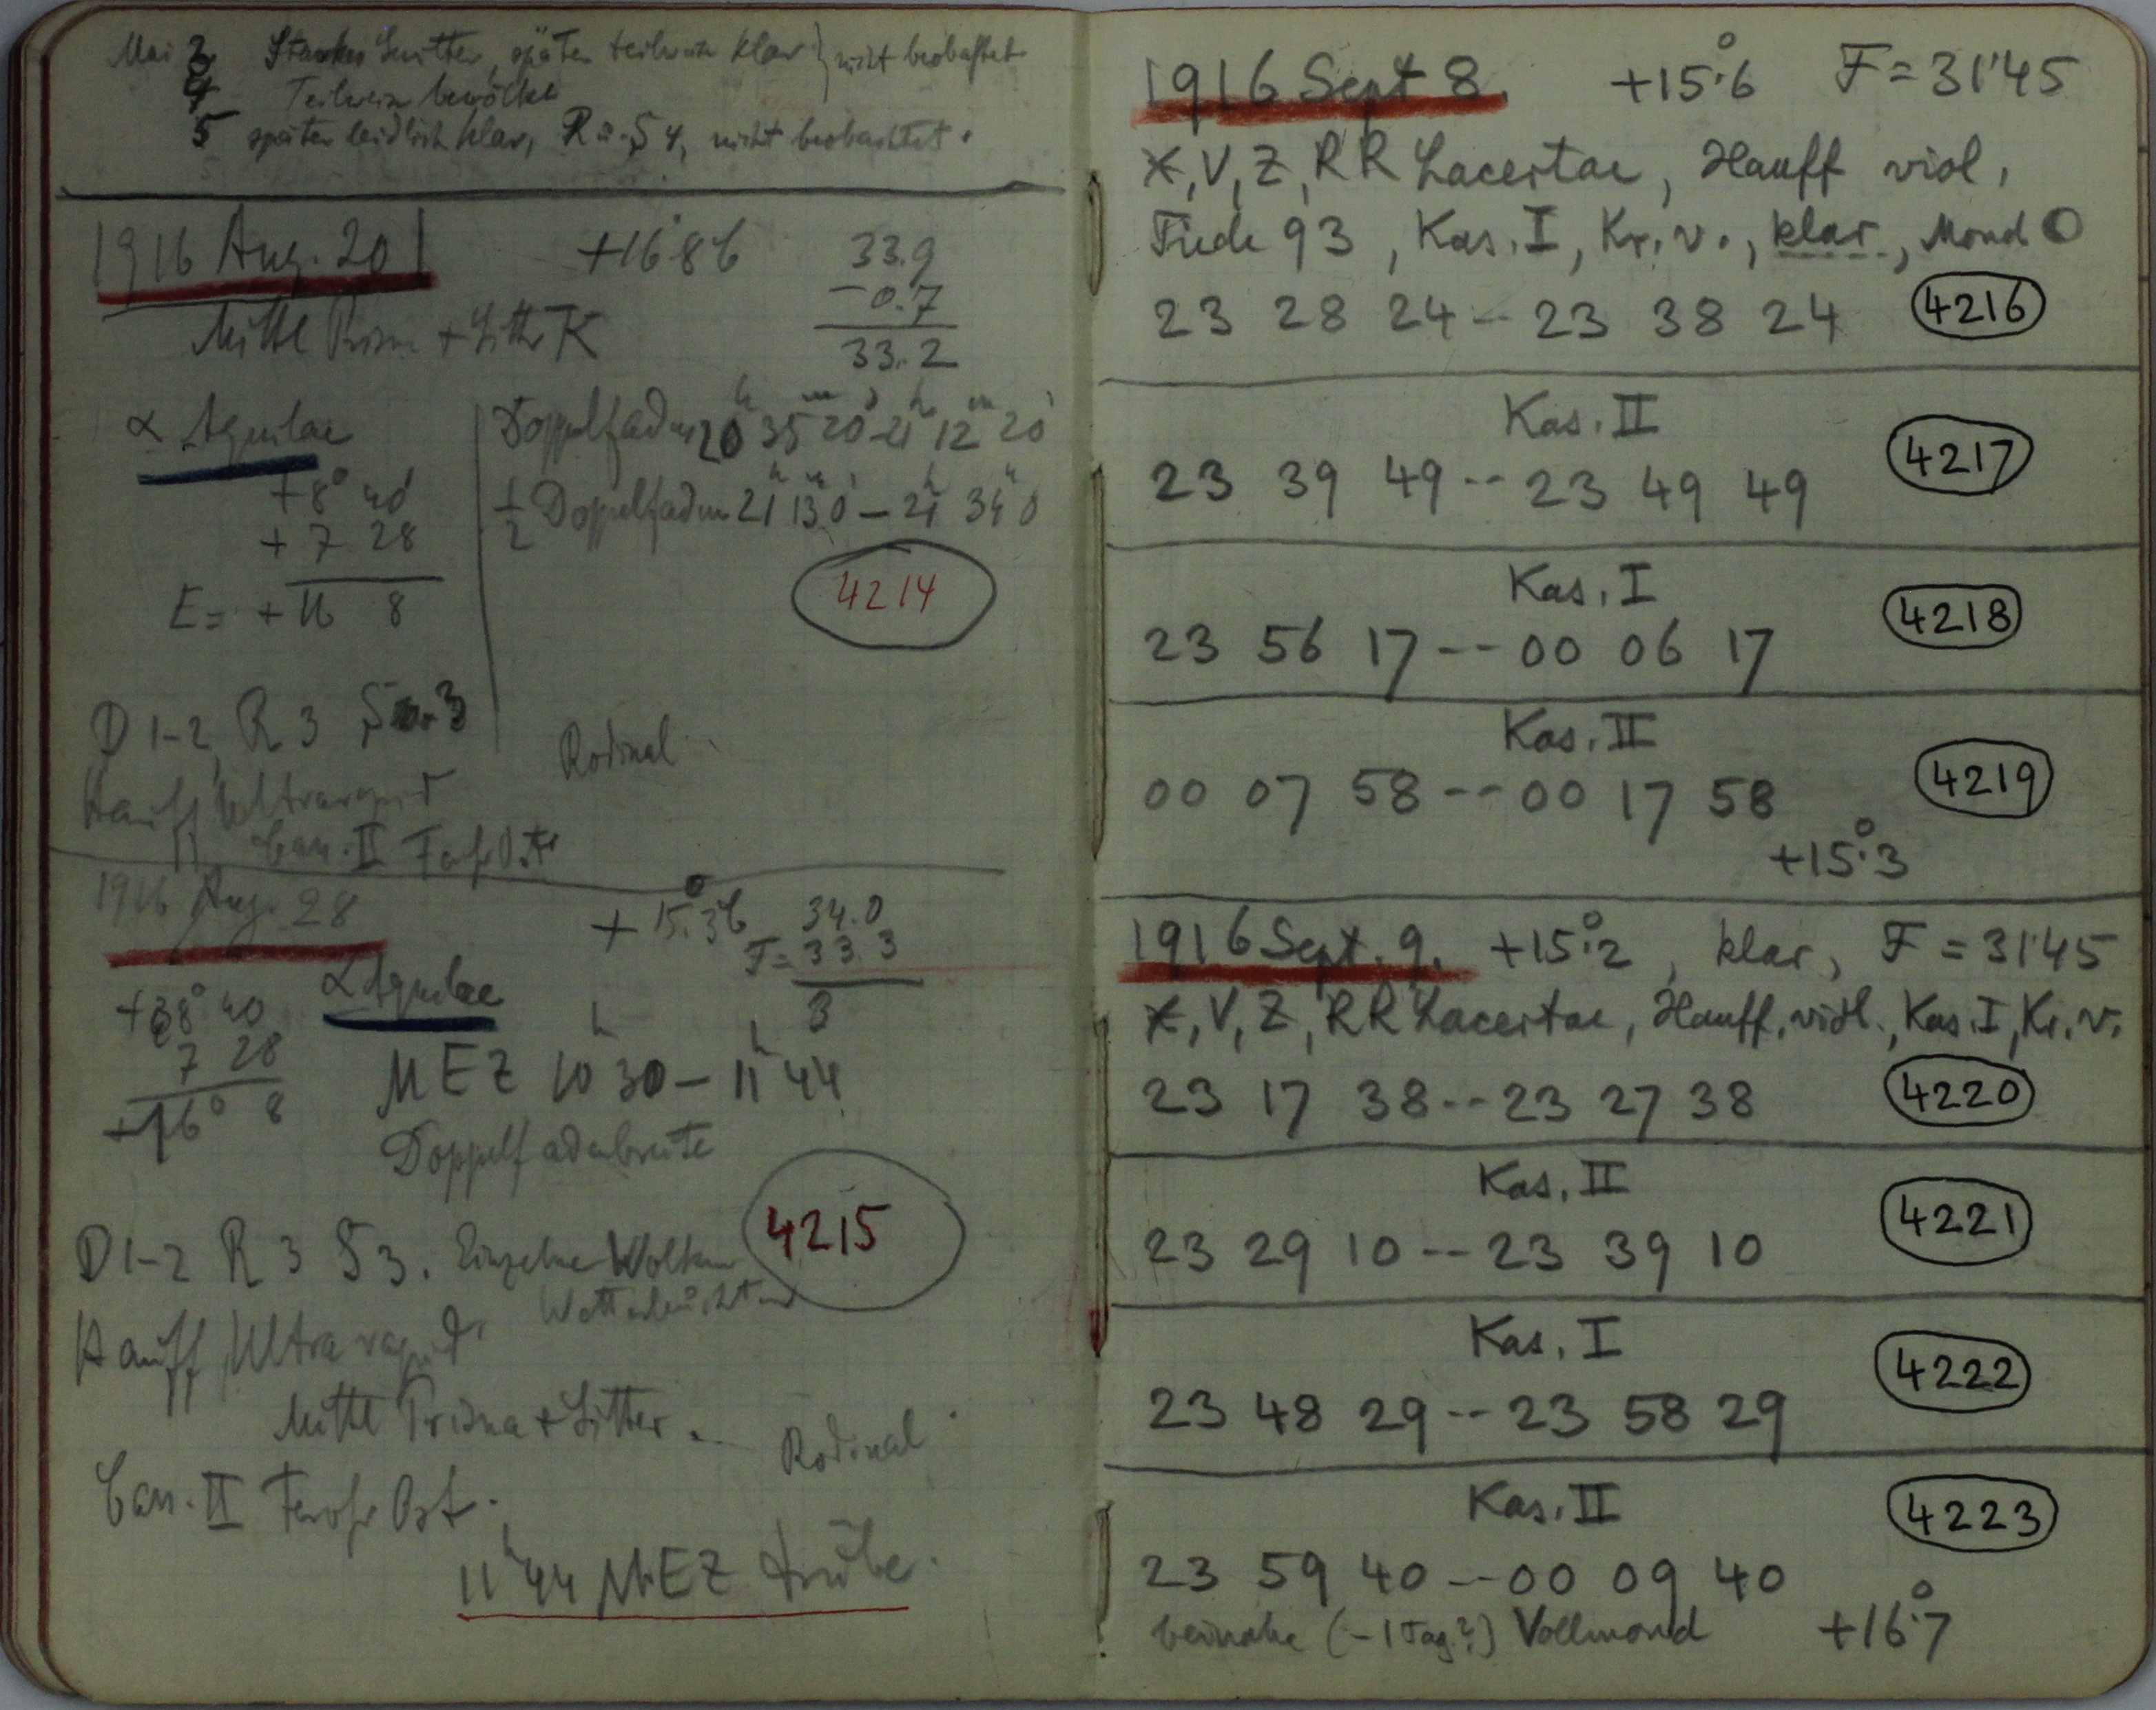 Mai 3 Starkes Gewitter, später teilweise klar } nicht beobachtet
4 Teilweise bewölkt
5 später leidlich klar, R u. S 4, nicht beobachtet.
1916 Aug. 20 +16.8 33.9
-0.7
33.2
Mittl Prisma + Gitter K
α Aquilae
Doppelfaden 20h 35m 20s - 21h 12m 20s
+8° 40'
+ 7 28
E = + 16 8
1/2 Doppelfaden 21h 13m 0s - 21h 34m 0
4214
D 1-2, R 3 S 3
Rodinal
Hauff Ultrarapid
Cass. II Fernr. Ost
1916 Aug. 28 +15.3 34.0
F = 33.3
3
+8° 40 α Aquilae
7 28
+16° 8
MEZ 10h 30 - 11h 44
Doppelfadenbreite
4215
D 1-2 R 3 S 3. Einzelne Wolken
Wetterleuchten
Hauff Ultrarapid.
Mittl Prisma + Gitter.
Rodinal.
Cass. II Fernr Ost.
11h 44 MEZ trübe.
1916 Sept 8. +15°.6 F = 31'45
X, V, Z, RR Lacertae, Hauff viol,
Tiede 93, Kas. I, Kr. v., klar, Mond O
23 28 24 -- 23 38 24 4216
Kas. II
23 39 49 -- 23 49 49 4217
Kas. I
23 56 17 -- 00 06 17 4218
Kas. II
00 07 58 -- 00 17 58 4219
+15°.3
1916 Sept. 9. +15°.2, klar, F = 31'45
X, V, Z, RR Lacertae, Hauff. viol., Kas. I, Kr. v.
23 17 38 -- 23 27 38 4220
Kas. II
23 29 10 -- 23 39 10 4221
Kas. I
23 48 29 -- 23 58 29 4222
Kas. II
23 59 40 -- 00 09 40 4223
beinahe (-1 Tag?) Vollmond +16°.7